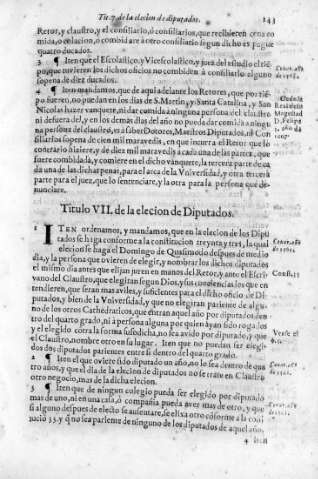 Tit.7. de la elecion de diputados. 143
Retor, y claustro, y el consiliario, ô consiliarios, que recibieren cena co
mida, o colacion, o combidare à otro consiliario segun dicho es pague
quatro ducados.
3 ¶ Iten que el Escolastico, y Vicescolastico, y juez del estudio el tiê-
po, que tuvieren los dichos oficios no combiden à consiliario alguno
sopena de diez ducados.
4 ¶ Iten mandamos, que de aqui adelante los Retores, que por tiê-
po fueren, no puedan en los dias de S. Martin, y Santa Catalina, y San
Nicolas hazer vanquete, ni dar comida à ninguna persona del claustro
ni defuera del, y en los demas dias del año no pueda dar comida à ningu
na persona del claustro, es a saber Dotores, Maestros Diputados, ni Con
siliarios sopena de cien mil maravedis, en que incurra el Retor que lo
contrario hiziere, y diez mil maravedis a cada una de las partes, que
fuere combidada, y comiere en el dicho vanquete, la tercera parte de ca
da una de las dichas penas, para el arca de la Vniversidad, y otra tercera
parte para el juez, que lo sentenciare, y la otra para la persona que de-
nunciare.
Titulo VII. de la elecion de Diputados.
1 ITEN ordenamos, y mandamos, que en la elecion de los Dipu
tados se haga conforme a la constitucion treynta y tres, la qual
elecion se haga el Domingo de Quasimodo despues de medio
dia, y la persona que ovieren de elegir, y nombrar los dichos diputados
el mismo dia antes que elijan juren en manos del Retor, y ante el Escri
vano del Claustro, que elegiran segun Dios, y sus conciencias los que en
tendieren, que seran mas aviles, y suficientes para el dicho oficio de Di
putados, y bien de la Vniversidad, y que no elegiran pariente de algu-
no de los otros Cathedraticos, que entran aquel año por diputados den
tro del quarto grado, ni à persona alguna por quien ayan sido rogados
y el elegido corra la forma susodicha, no sea avido por diputado, y que
el Claustro, nombre otro en su lugar. Iten que no puedan ser elegi-
dos dos Diputados parientes entre si dentro del quarto grado.
2 ¶ Iten el que oviere sido diputado un año, no lo sea dentro de qua
tro años, y que el dia de la elecion de diputados no se trate en Claustro
otro negocio, mas de la dicha elecion.
3 ¶ Iten que de ningun colegio pueda ser elegido por diputado
mas de uno, ni en una casa, ô compañia pueda aver mas de otro, y que
si alguno despues de electo se ausentare, se elija otro côforme a la consti
tucio 33. y q no sea pariente de ninguno de los diputados de aquel año.
Const. 33
4 Iten